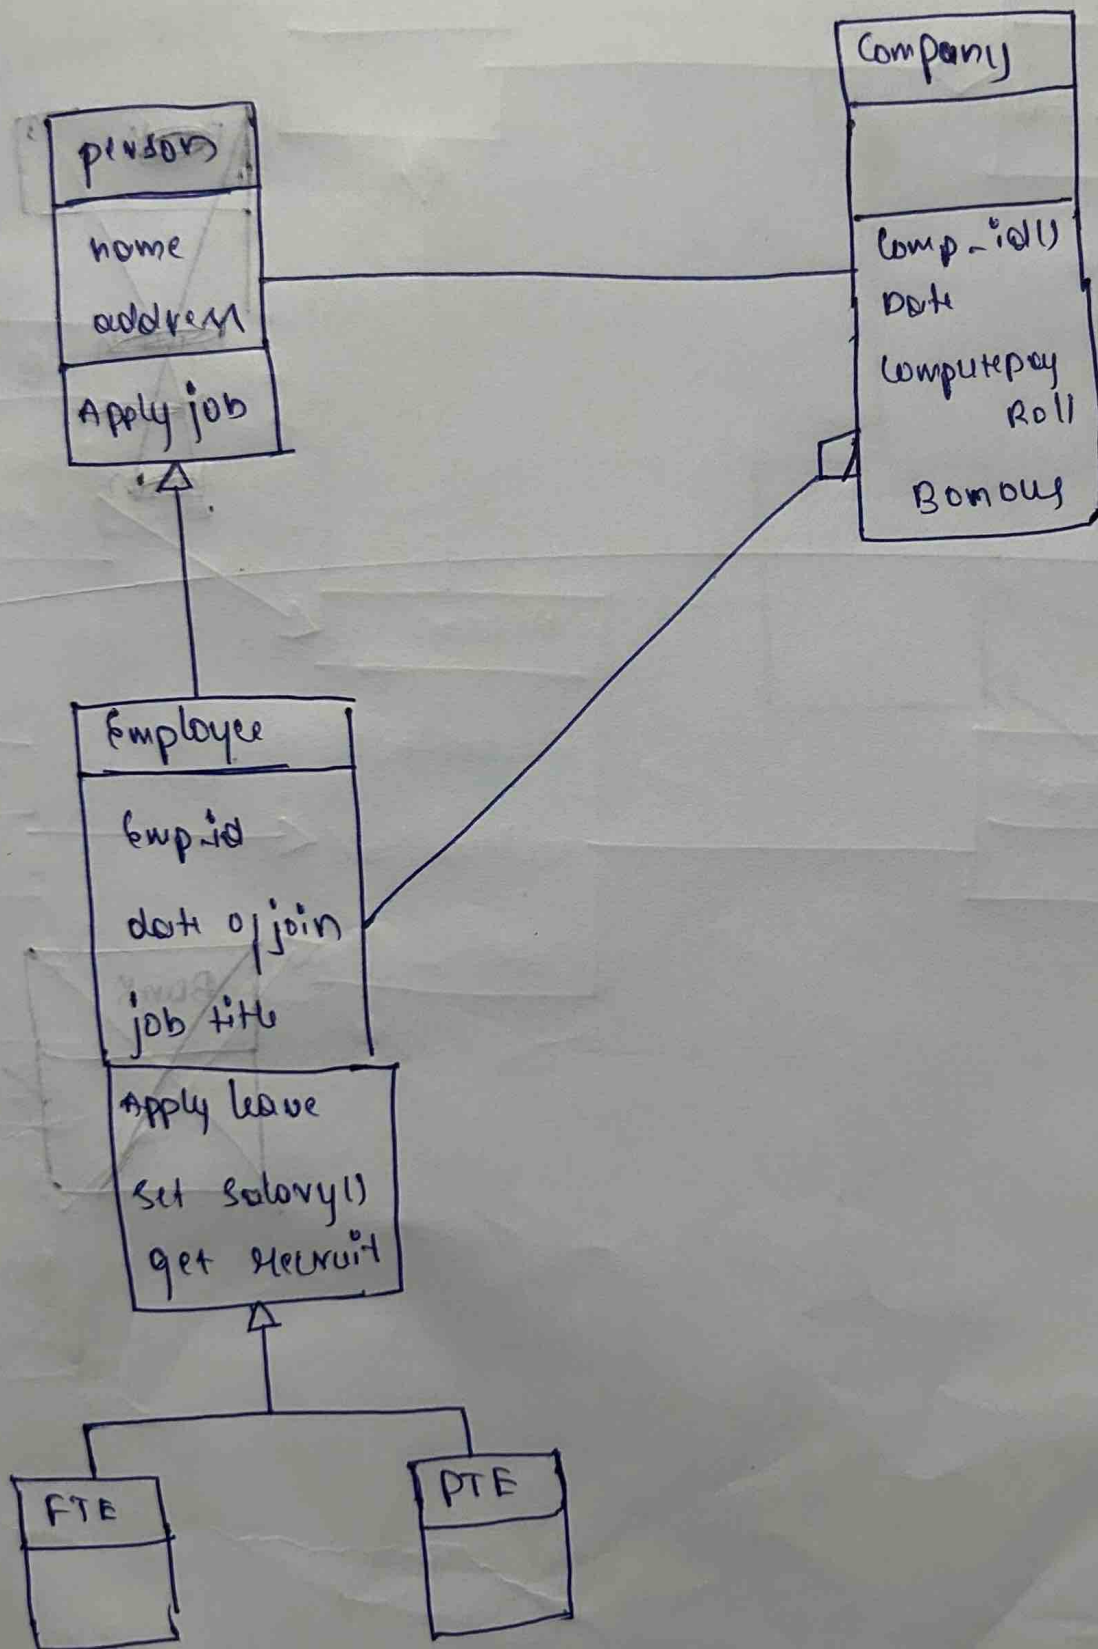 Company
person
name
address
Apply job
Comp_id()
Date
Computepay
Roll
Bonous
Employee
Emp_id
date of join
job title
Apply leave
set salary()
get recruit
FTE
PTE